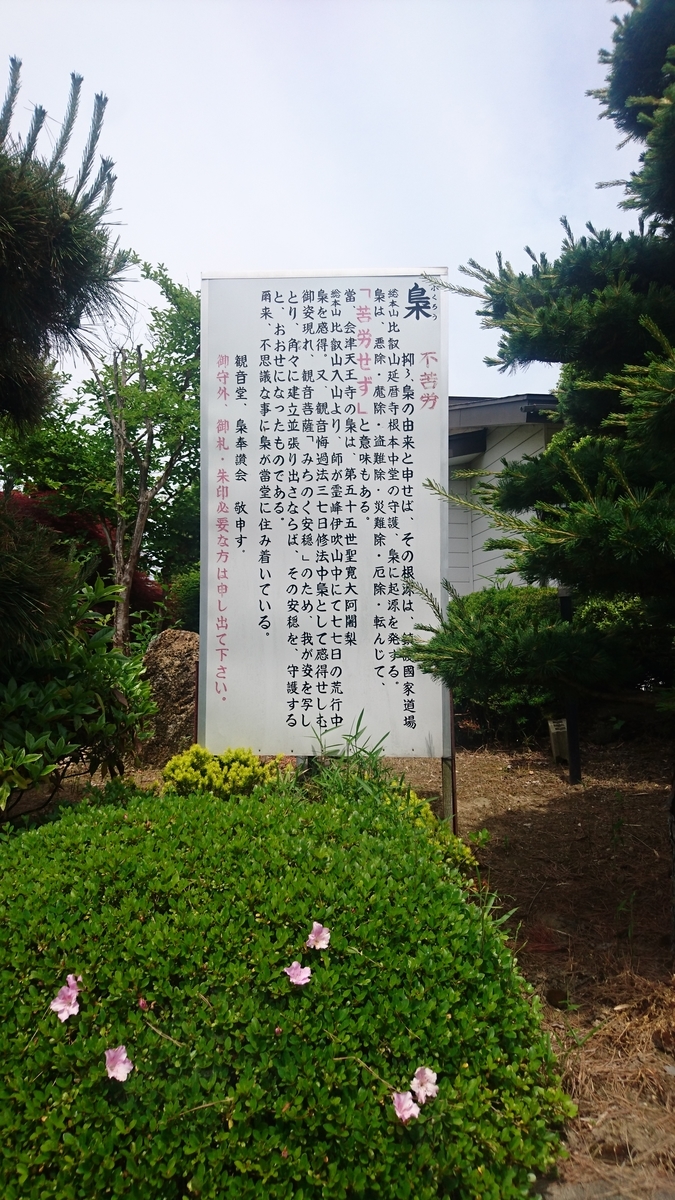 不苦労
梟 ふくろう
抑〻梟の由来と申せば、その根源は、 護國家道場
総本山比叡山延暦寺根本中堂の守護、梟に起源を発する。
梟は、悪除・魔除・盗難除・災難除・厄除・転んじて、
「苦労せず」と意味もある。
当、会津天王寺の梟は、第五十五世聖寛大阿闍梨
総本山比叡山入山より、師が霊峰伊吹山中にて七七日の荒行中
梟を感得、又、観音悔過法三七日修法中梟として感得せしむ
御姿現れ、観音菩薩「みちのく安穏」のため、我が姿を写し
とり、角々に建立並張り出さならば、その安穏を、守護する
と、おおせになったものである。
爾来、不思議な事に梟が当堂に住み着いている。
観音堂、梟奉讃会 敬申す。
御守外、御札・朱印必要な方は申し出て下さい。